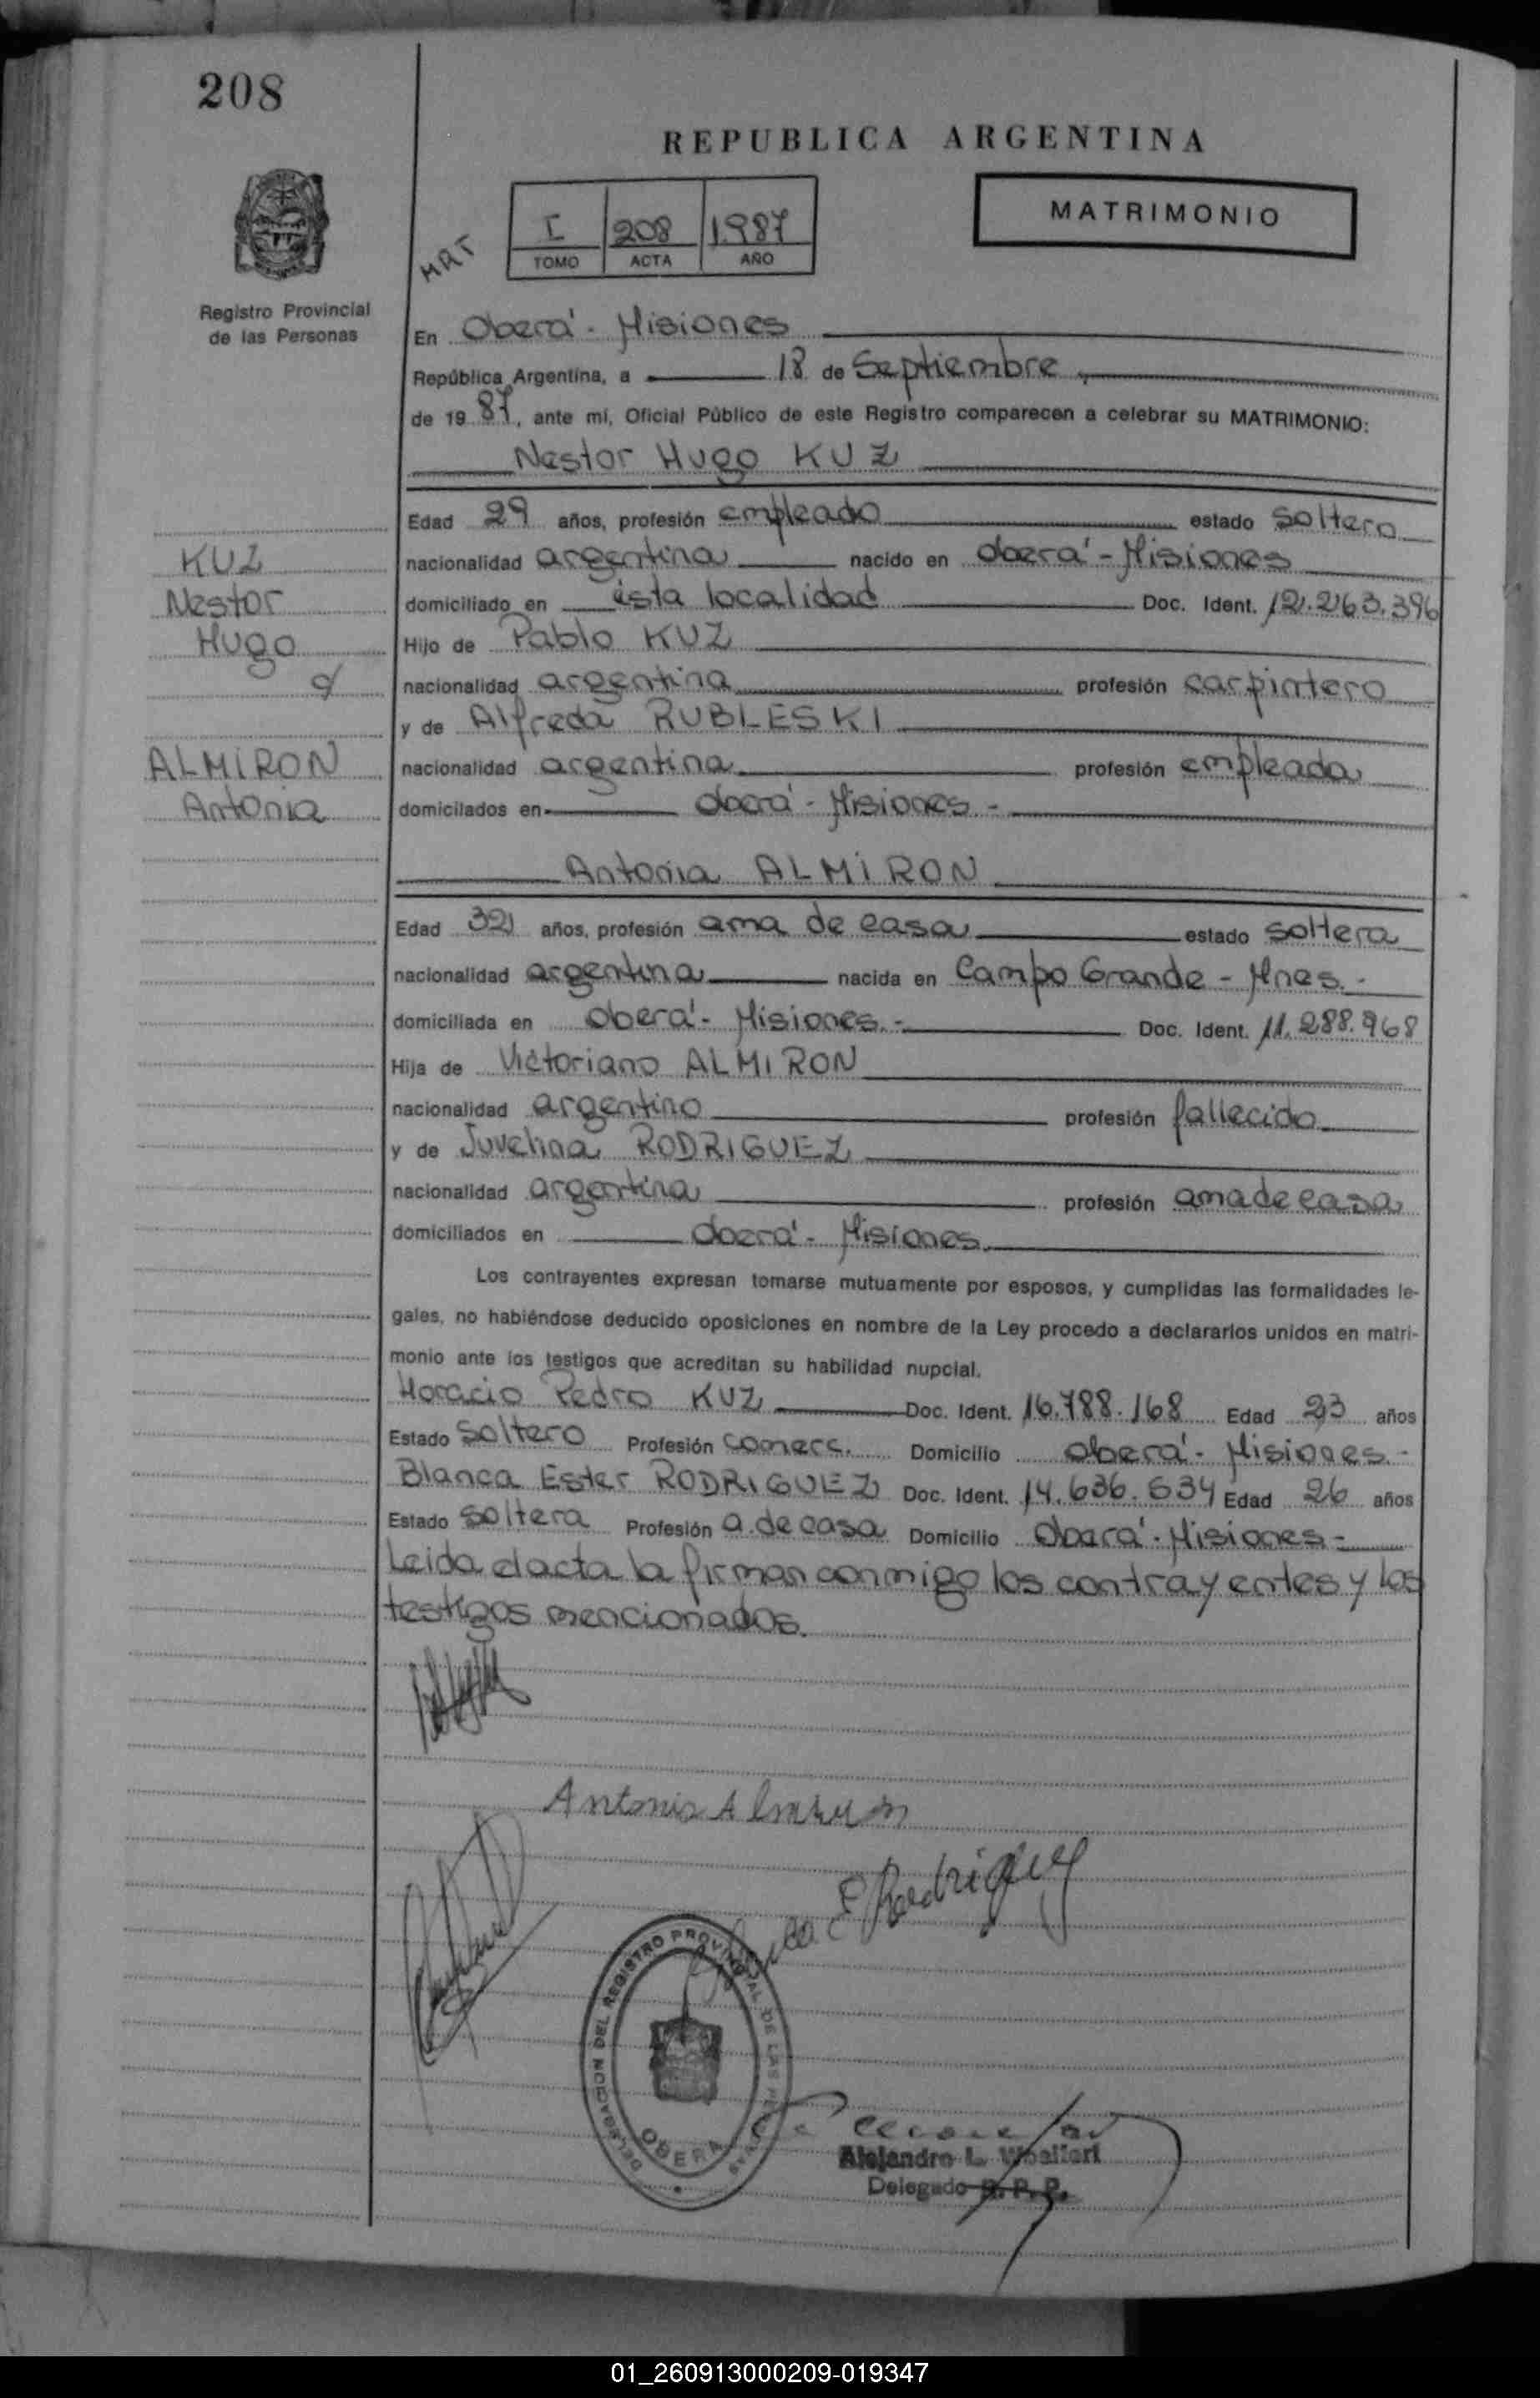 208
REPUBLICA ARGENTINA
MATRIMONIO
MAT
I 208 1987
TOMO ACTA AÑO
Registro Provincial
de las Personas
En Oberá - Misiones
República Argentina, a 18 de Septiembre
de 19 87, ante mí, Oficial Público de este Registro comparecen a celebrar su MATRIMONIO:
Nestor Hugo KUZ
Edad 29 años, profesión empleado estado soltero
KUZ
Nestor
Hugo
nacionalidad argentina nacido en Oberá - Misiones
domiciliado en ésta localidad Doc. Ident. 12.263.396
Hijo de Pablo KUZ
nacionalidad argentina profesión carpintero
y de Alfreda RUBLESKI
ALMIRON
Antonia
nacionalidad argentina profesión empleada
domicilados en Oberá - Misiones -
Antonia ALMIRON
Edad 32 años, profesión ama de casa estado soltera
nacionalidad argentina nacida en Campo Grande - Mnes. -
domiciliada en Oberá - Misiones - Doc. Ident. 11.288.968
Hija de Victoriano ALMIRON
nacionalidad argentino profesión fallecido
y de Juvelina RODRIGUEZ
nacionalidad argentina profesión ama de casa
domiciliados en Oberá - Misiones
Los contrayentes expresan tomarse mutuamente por esposos, y cumplidas las formalidades le-
gales, no habiéndose deducido oposiciones en nombre de la Ley procedo a declararlos unidos en matri-
monio ante los testigos que acreditan su habilidad nupcial.
Horacio Pedro KUZ Doc. Ident. 16.788.168 Edad 23 años
Estado soltero Profesión comerc. Domicilio Oberá - Misiones -
Blanca Ester RODRIGUEZ Doc. Ident. 14.636.634 Edad 26 años
Estado soltera Profesión a. de casa Domicilio Oberá - Misiones -
Leida el acta la firman conmigo los contrayentes y los
testigos mencionados.
Antonia Almiron
E Rodriguez
DELEGACION DEL REGISTRO PROVINCIAL DE LAS PERSONAS
OBERA
Alejandro L.
Delegado R. P. P.
01_260913000209-019347